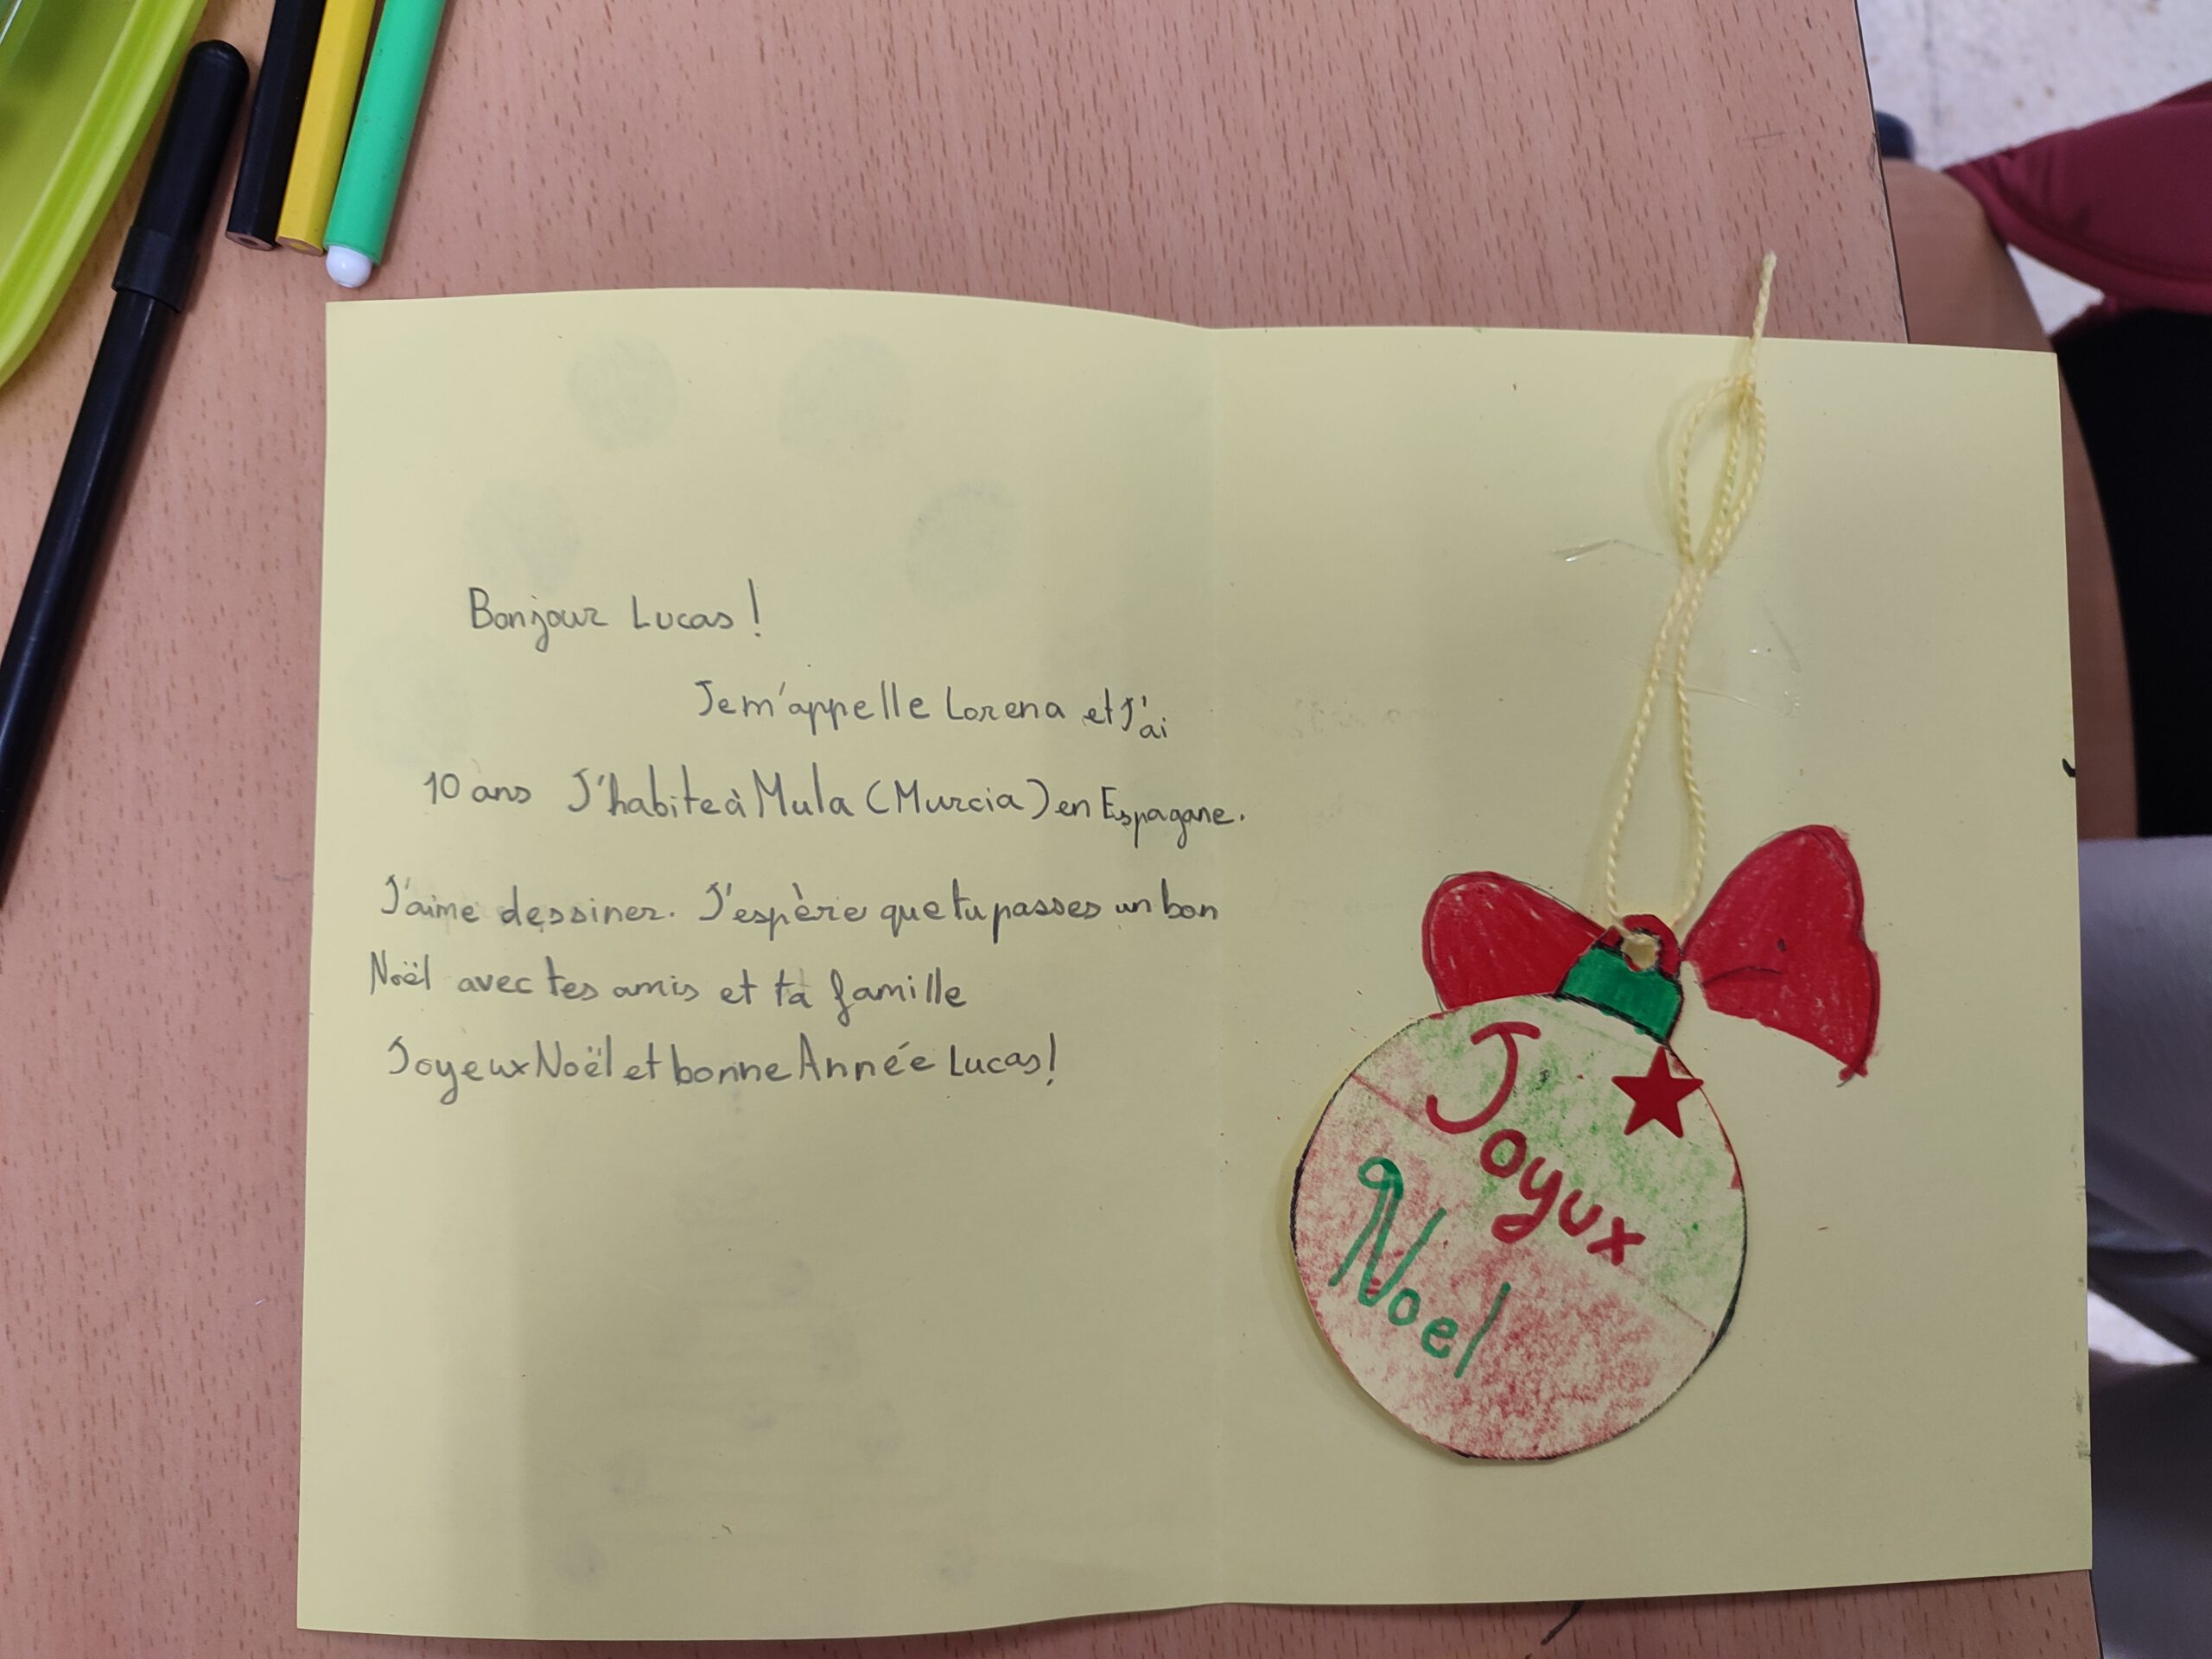 Bonjour Lucas !
Je m'appelle Lorena et J'ai
10 ans J'habite à Mula (Murcia) en Espagane.
J'aime dessiner. J'espère que tu passes un bon
Noël avec tes amis et ta famille
Joyeux Noël et bonne Année Lucas!
Joyux
Noel